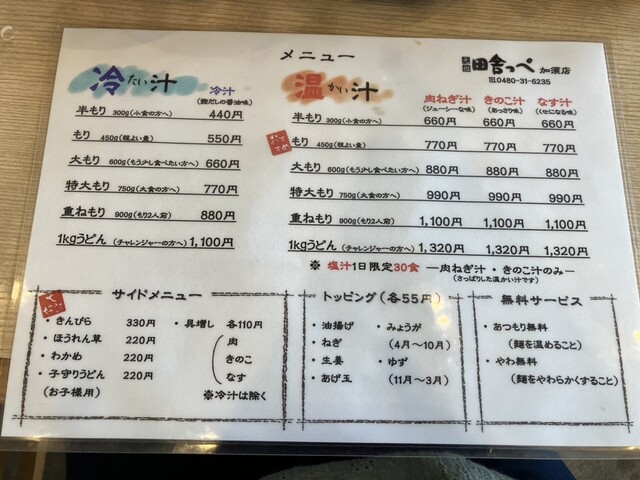 メニュー
田舎っぺ 加須店
℡0480-31-6235
冷たい汁
冷汁
(鰹だしの醤油味)
半もり 300g(小食の方へ) 440円
もり 450g(程よい量) 550円
大もり 600g(もう少し食べたい方へ) 660円
特大もり 750g(大食の方へ) 770円
重ねもり 900g(もり2人前) 880円
1kgうどん (チャレンジャーの方へ) 1,100円
温かい汁
肉ねぎ汁 きのこ汁 なす汁
(ジューシーな味) (あっさり味) (くせになる味)
半もり 300g(小食の方へ) 660円 660円 660円
もり 450g(程よい量) 770円 770円 770円
大もり 600g(もう少し食べたい方へ) 880円 880円 880円
特大もり 750g(大食の方へ) 990円 990円 990円
重ねもり 900g(もり2人前) 1,100円 1,100円 1,100円
1kgうどん (チャレンジャーの方へ) 1,320円 1,320円 1,320円
※ 塩汁1日限定30食 ―肉ねぎ汁・きのこ汁のみ―
(さっぱりした温かい汁です)
サイドメニュー
・きんぴら 330円
・ほうれん草 220円
・わかめ 220円
・子守りうどん 220円
(お子様用)
・具増し 各110円
肉
きのこ
なす
※冷汁は除く
トッピング(各55円)
・油揚げ
・ねぎ
・生姜
・あげ玉
・みょうが
(4月~10月)
・ゆず
(11月~3月)
無料サービス
・あつもり無料
(麺を温めること)
・やわ無料
(麺をやわらかくすること)